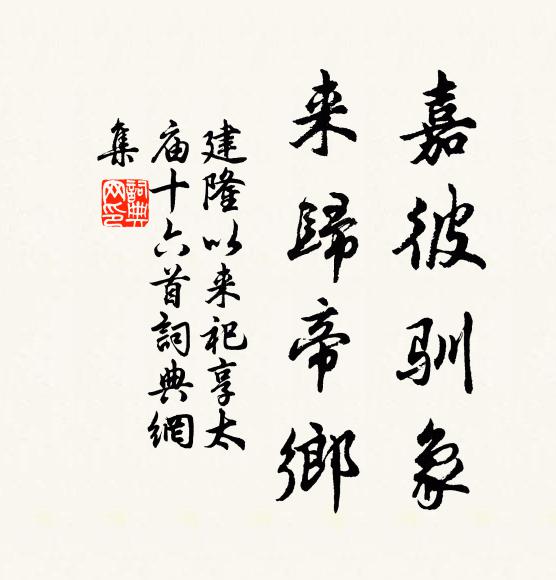 嘉彼驯象
来歸帝鄉
建隆以来祀享太
庙十六首詞典網
集
詞典
网印